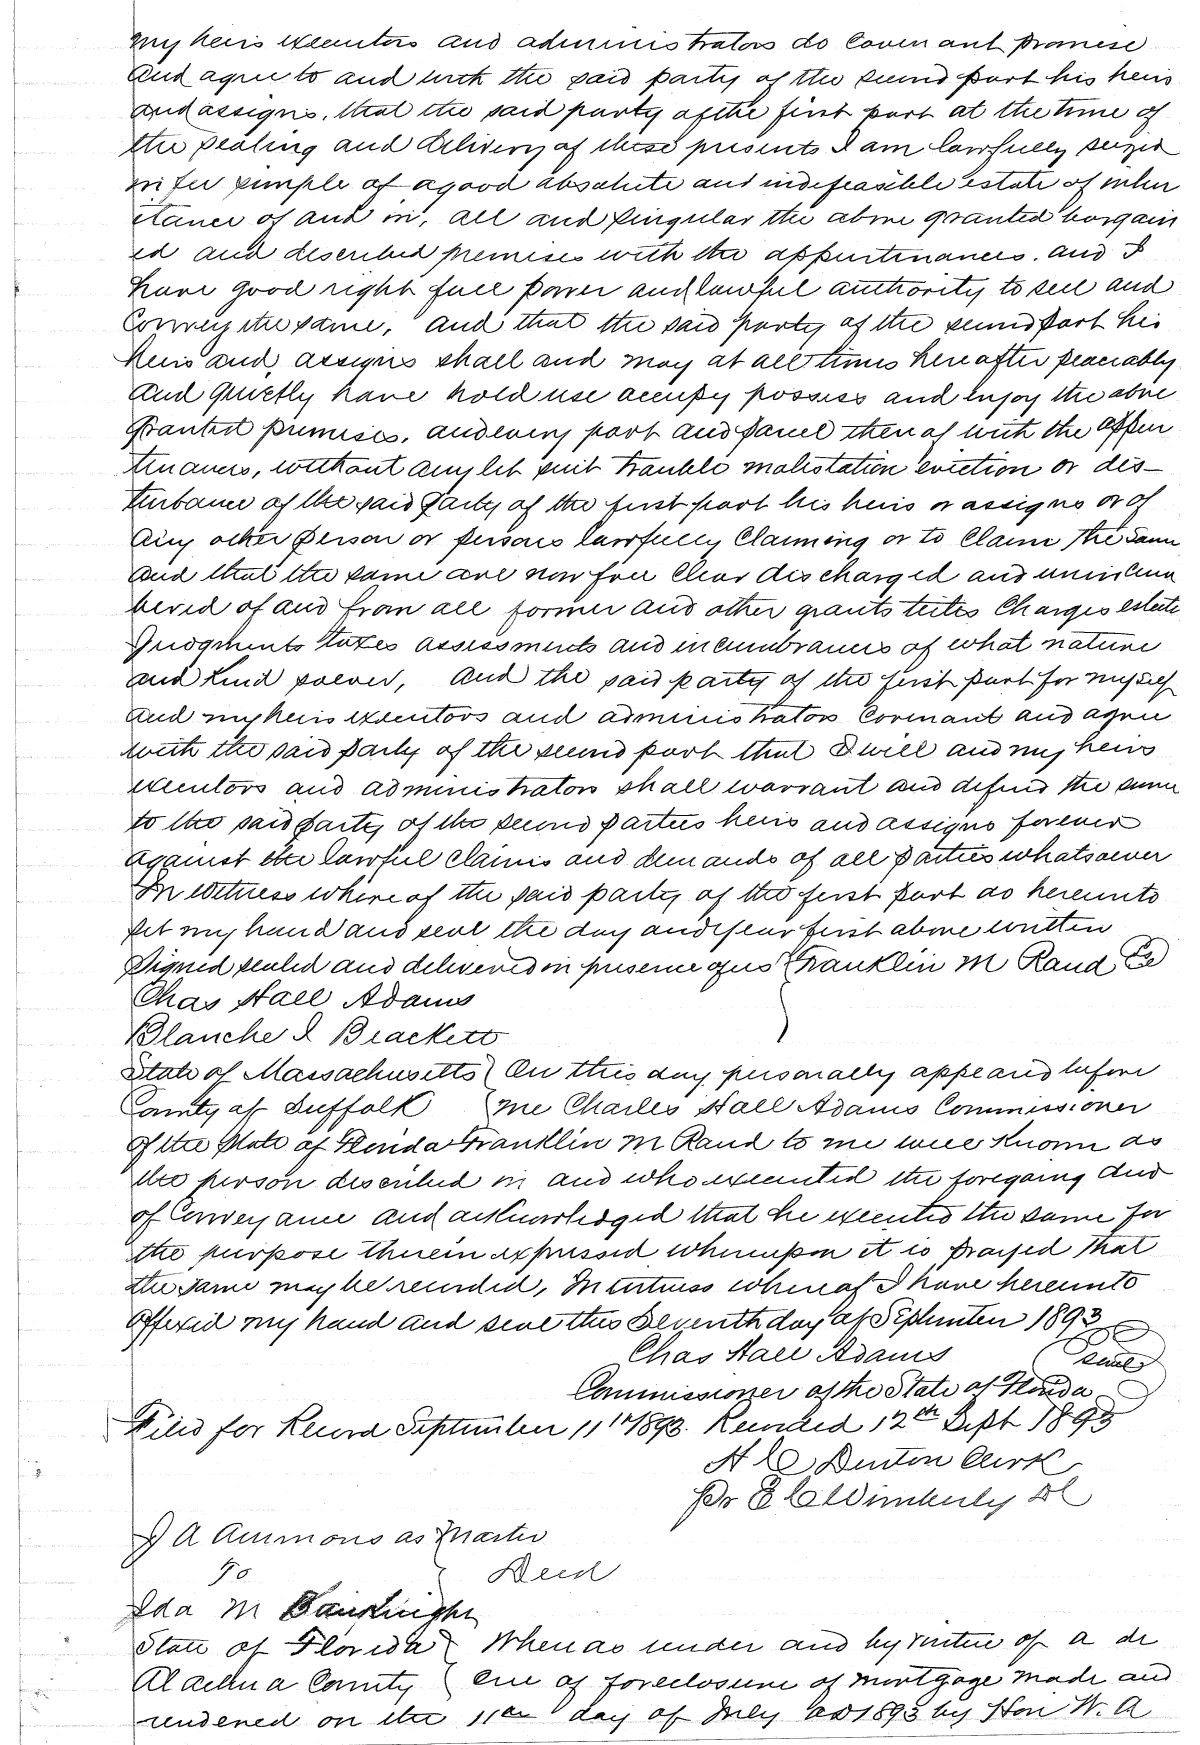 my heirs executors and administrators do Covenant promise
and agree to and with the said party of the second part his heirs
and assigns, that the said party of the first part at the time of
the sealing and delivery of these presents I am lawfully seized
in fee simple of a good absolute and indefeasible estate of inher
itance of and in, all and singular the above granted bargain
ed and described premises with the appurtenances. and I
have good right full power and lawful authority to sell and
Convey the same, and that the said party of the second part his
heirs and assigns shall and may at all times hereafter peaceably
and quietly have hold use occupy possess and enjoy the above
granted premises, and every part and parcel thereof with the appur
tenances, without any let suit trouble molestation eviction or dis-
turbance of the said party of the first part his heirs or assigns or of
any other person or persons lawfully Claiming or to Claim the same
and that the same are now free Clear discharged and unincum
bered of and from all former and other grants titles Charges estate
Judgments taxes assessments and incumbrances of what nature
and kind soever, And the said party of the first part for myself
and my heirs executors and administrators Covenant and agree
with the said party of the second part that I will and my heirs
executors and administrators shall warrant and defend the same
to the said party of the second parties heirs and assigns forever
against the lawful Claims and demands of all parties whatsoever
In Witness whereof the said party of the first part do hereunto
set my hand and seal the day and year first above written
Signed sealed and delivered in presence of us Franklin M Rand
Chas Hall Adams
Blanche I Brackett
State of Massachusetts On this day personally appeared before
County of Suffolk me Charles Hall Adams Commissioner
of the State of Florida Franklin M Rand to me well known as
the person described in and who executed the foregoing deed
of Conveyance and acknowledged that he executed the same for
the purpose therein expressed whereupon it is prayed that
the same may be recorded, In witness whereof I have hereunto
affixed my hand and seal this Seventh day of September 1893
Chas Hall Adams seal
Commissioner of the State of Florida
Filed for Record September 11th 1893. Recorded 12th Sept 1893
H C Denton Clerk
Pr E C Wimberly DC
J A Ammons as Master
To Deed
Ida M Bauknight
State of Florida Whereas under and by virtue of a de
Alachua County cree of foreclosure of mortgage made and
rendered on the 11th day of July AD 1893 by Hon W. A